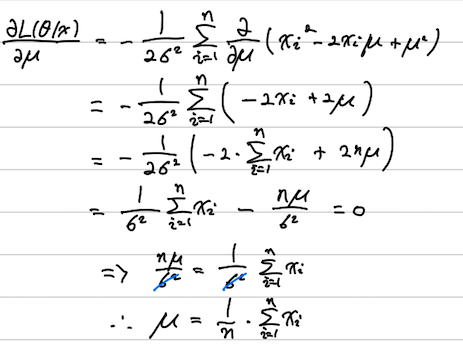 ∂L(θ/x)/∂μ = - 1/2σ² ∑_{i=1}^{n} ∂/∂μ (xᵢ² - 2xᵢμ + μ²)
= - 1/2σ² ∑_{i=1}^{n} (-2xᵢ + 2μ)
= - 1/2σ² (-2 · ∑_{i=1}^{n} xᵢ + 2nμ)
= 1/σ² ∑_{i=1}^{n} xᵢ - nμ/σ² = 0
=> nμ/σ² = 1/σ² ∑_{i=1}^{n} xᵢ
∴ μ = 1/n · ∑_{i=1}^{n} xᵢ